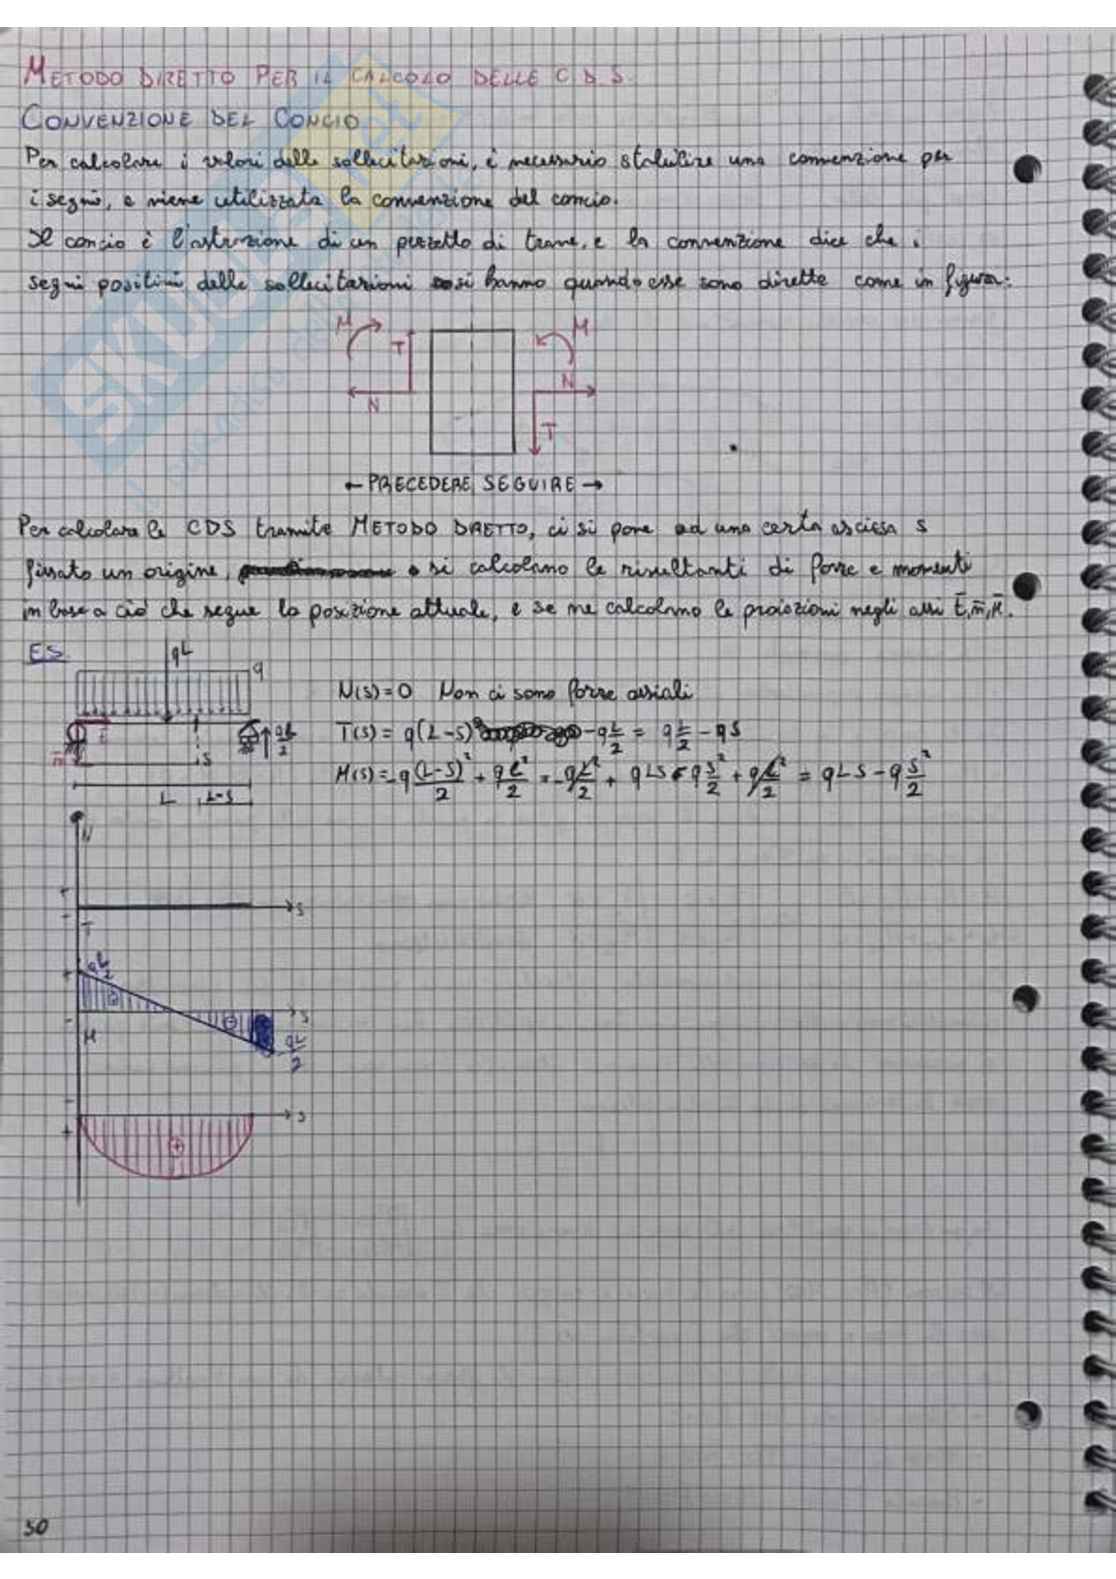 METODO DIRETTO PER IL CALCOLO DELLE C.D.S.
CONVENZIONE DEL CONCIO
Per calcolare i valori delle sollecitazioni, è necessario stabilire una convenzione per
i segni, e viene utilizzata la convenzione del concio.
Il concio è l'astrazione di un pezzetto di trave, e la convenzione dice che i
segni positivi delle sollecitazioni si hanno quando esse sono dirette come in figura:
M T N M N T
← PRECEDERE SEGUIRE →
Per calcolare le CDS tramite METODO DIRETTO, ci si pone ad una certa ascissa s
fissato un origine, e si calcolano le risultanti di forze e momenti
in base a ciò che segue la posizione attuale, e se ne calcolano le proiezioni negli assi t̄, n̄, M̄.
ES.
qL
q
qL/2
s
L L-S
N(s)=0 Non ci sono forze assiali
T(s) = q(L-s) - qL/2 = qL/2 - qs
M(s) = -q(L-S)²/2 + qL²/2 = -qL²/2 + qLS - qS²/2 + qL²/2 = qLS - qS²/2
N
+
-
s
T
qL/2
+
-
s
-qL/2
M
-
+
s
50
SKUOLA.net